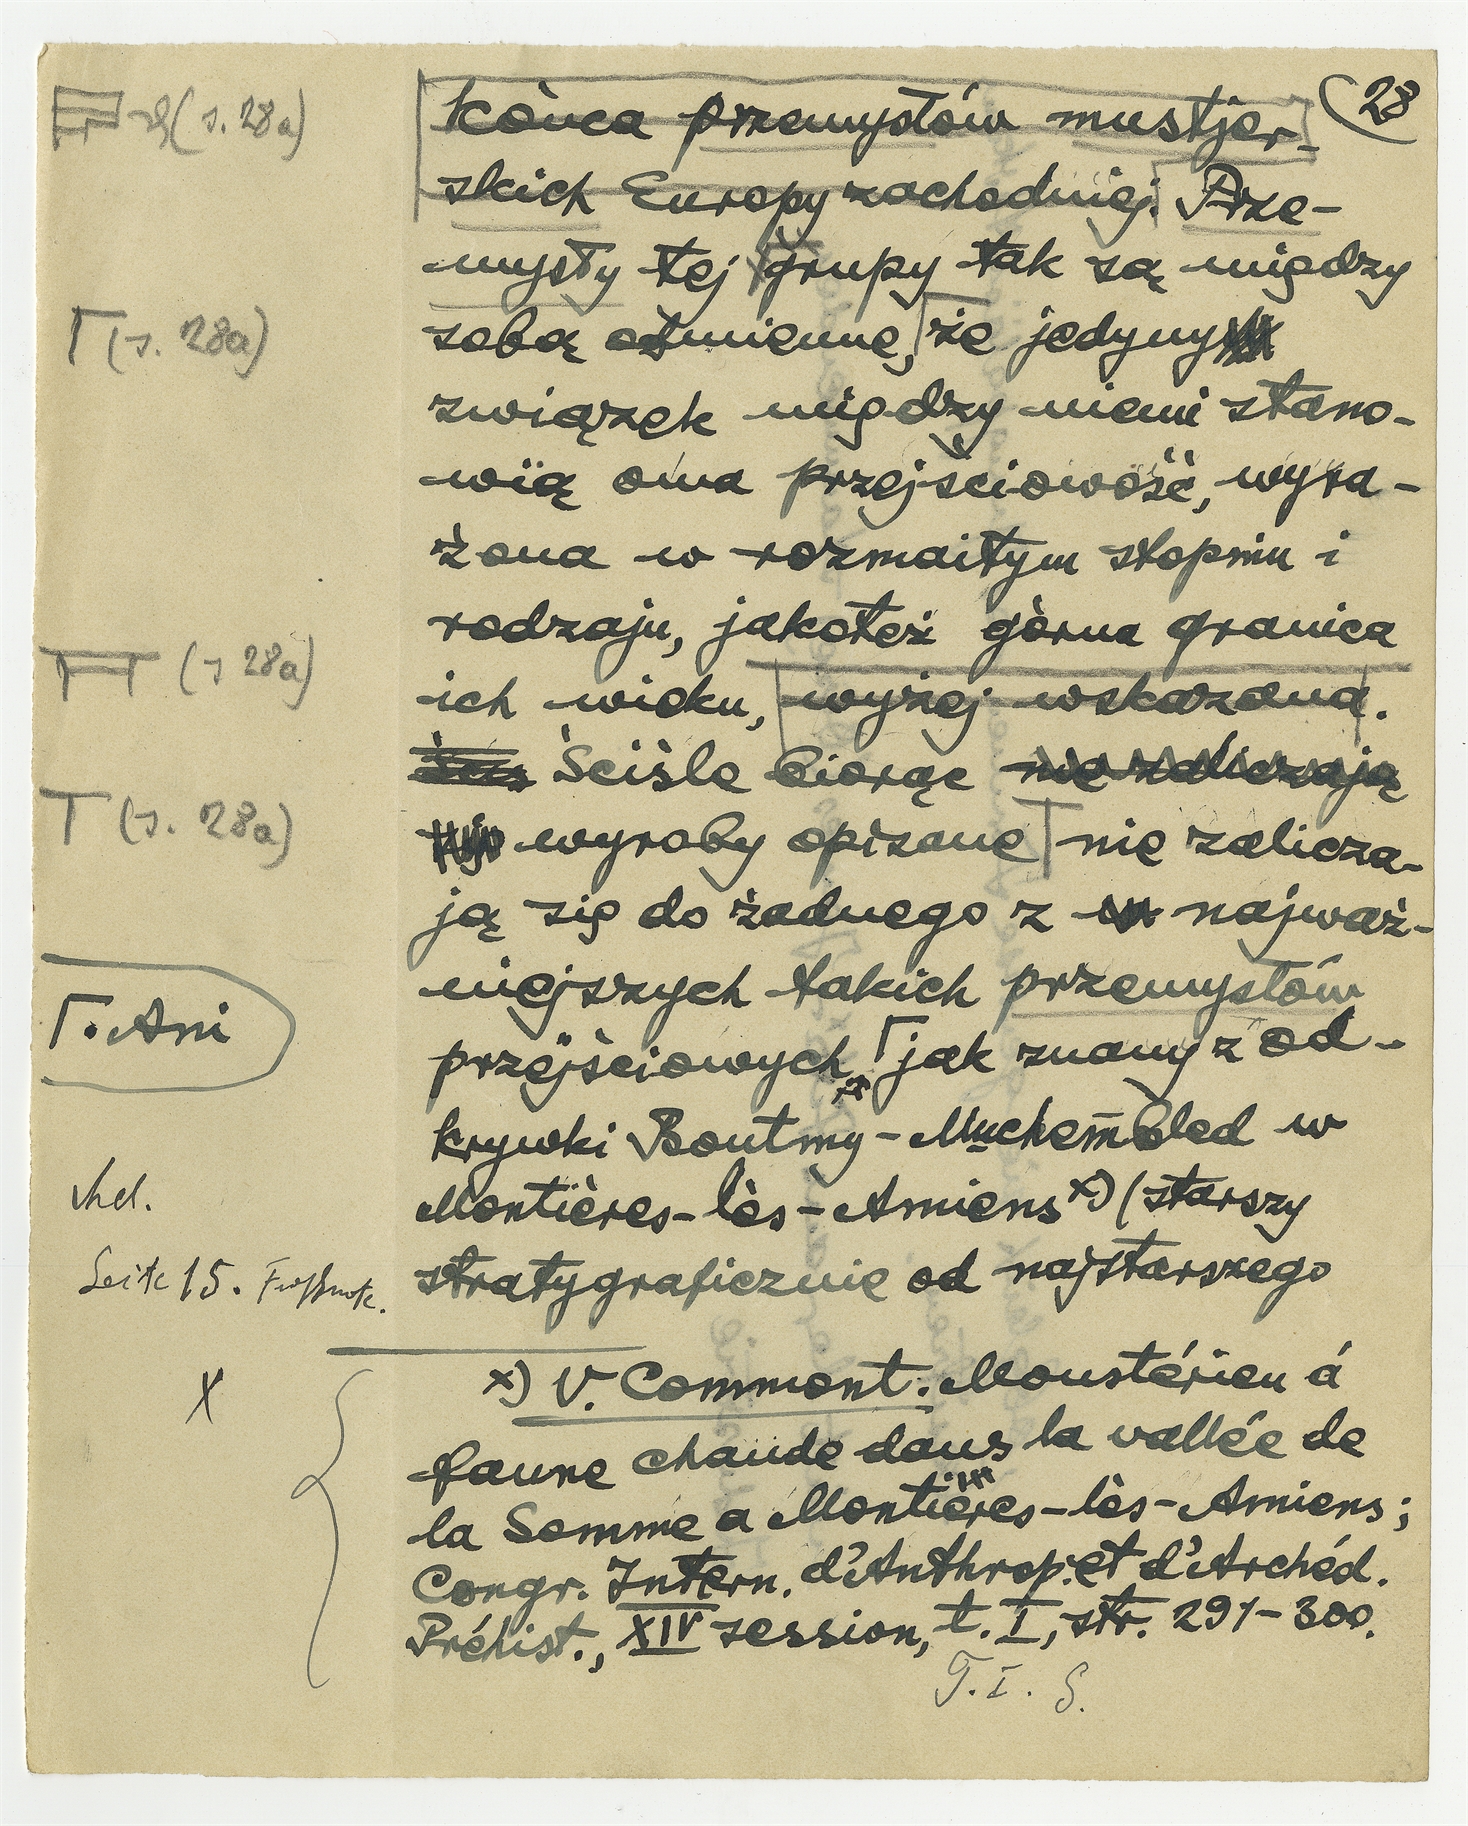 28
końca przemysłów mustjer-
skich Europy zachodniej. Prze-
mysły tej grupy tak są między
sobą odmienne, że jedyny
związek między niemi stano-
wią owa przejściowość, wyra-
żona w rozmaitym stopniu i
rodzaju, jakoteż górna granica
ich wieku, wyżej wskazana.
Ściśle biorąc nie zaliczają
wyroby opisane nie zalicza-
ją się do żadnego z najważ-
niejszych takich przemysłów
przejściowych, jak znany z od-
krywki Boutmy-Muchembled w
Montières-lès-Amiens x) (starszy
stratygraficznie od najstarszego
x) V. Commont. Moustérien á
faune chaude dans la vallée de
la Somme a Montières-lès-Amiens;
Congr. Intern. d'Anthrop. et d'Archéol.
Préhist., XIV session, t. I, str. 291-300.
T. I. S.
(s. 28a)
Γ (s. 28a)
(s 28a)
T (s. 28a)
Γ. Ani
Seite 15. Fußnote.
X